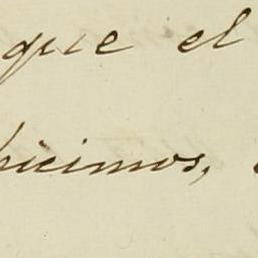 que el
hicimos,